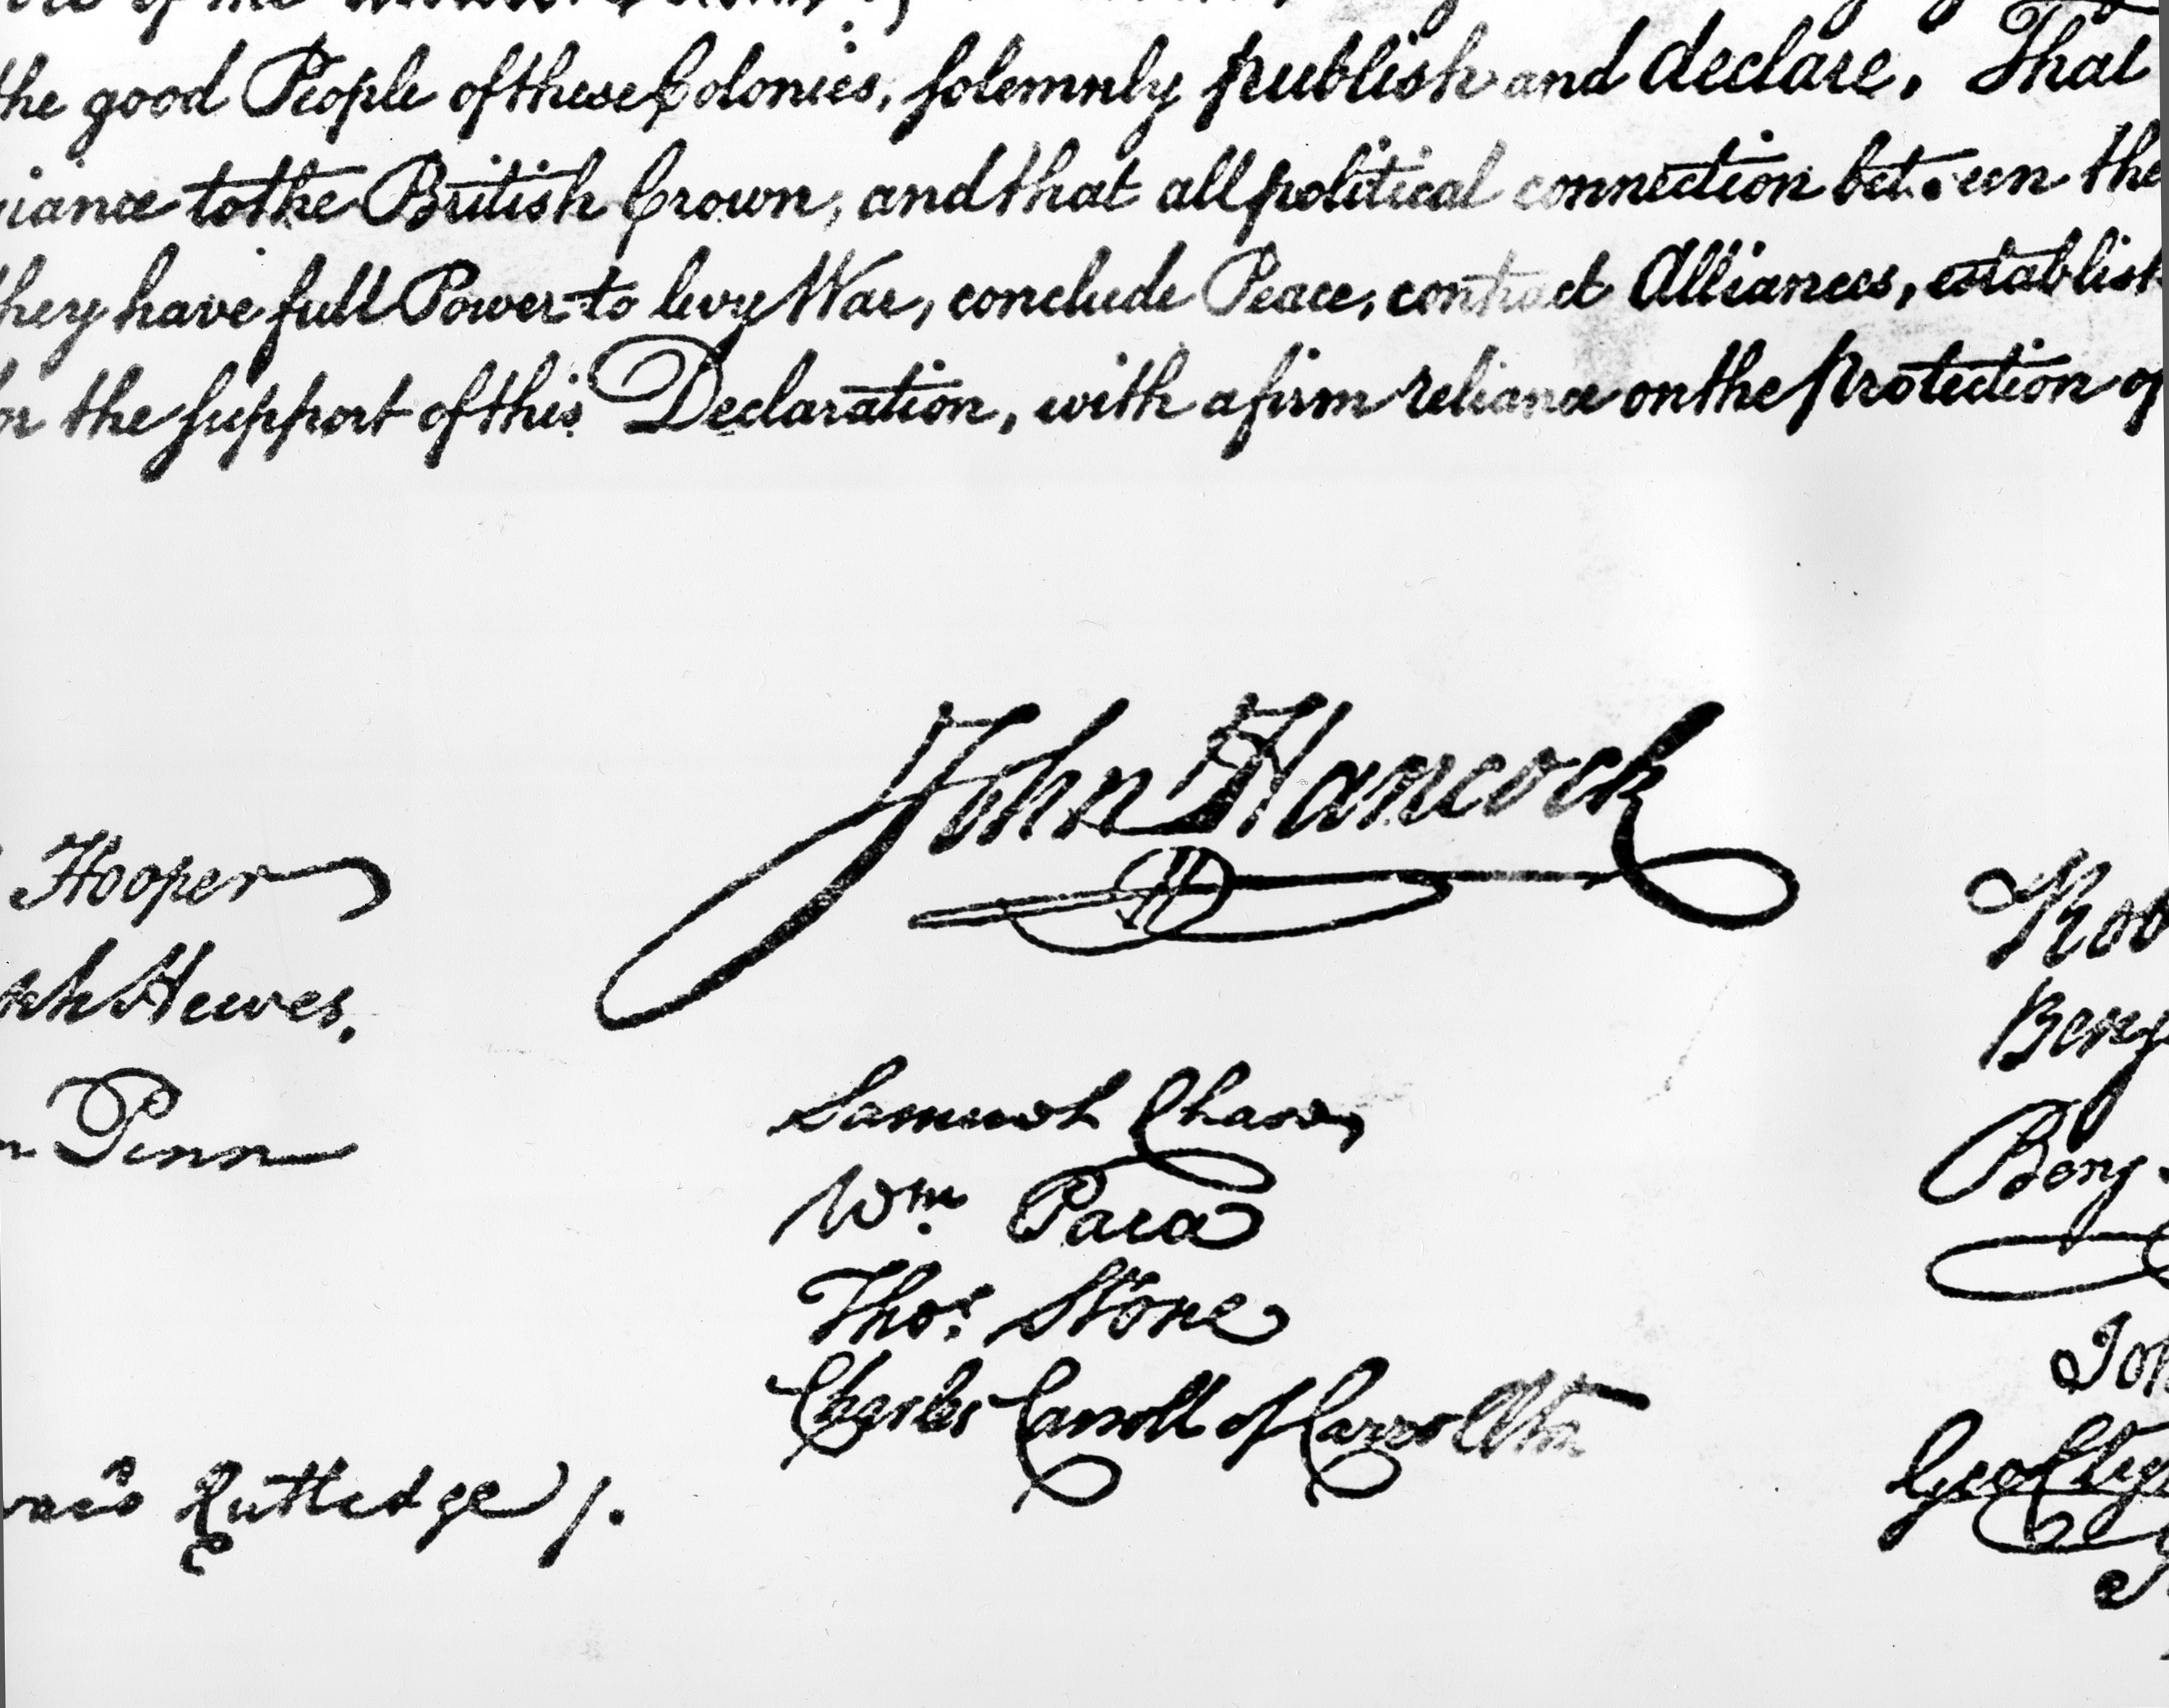 the good People of these Colonies, solemnly publish and declare, That
to the British Crown, and that all political connection between the
they have full Power to levy War, conclude Peace, contract Alliances, establish
the support of this Declaration, with a firm reliance on the Protection of
John Hancock
Hooper
Hewes,
Penn
Samuel Chase
Wm. Paca
Thos. Stone
Charles Carroll of Carrollton
Rutledge /.
Rob
Benj
Benj
Joh
Geo